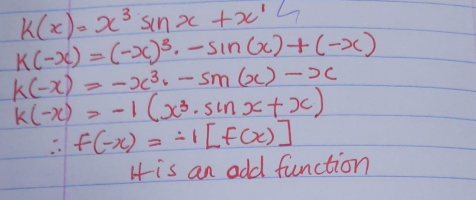 K(x) = x³ sin x + x'
K(-x) = (-x)³. - sin (x) + (-x)
K(-x) = -x³. - sm (x) - x
K(-x) = -1 (x³. sin x + x)
∴ f(-x) = -1 [f(x)]
It is an odd function